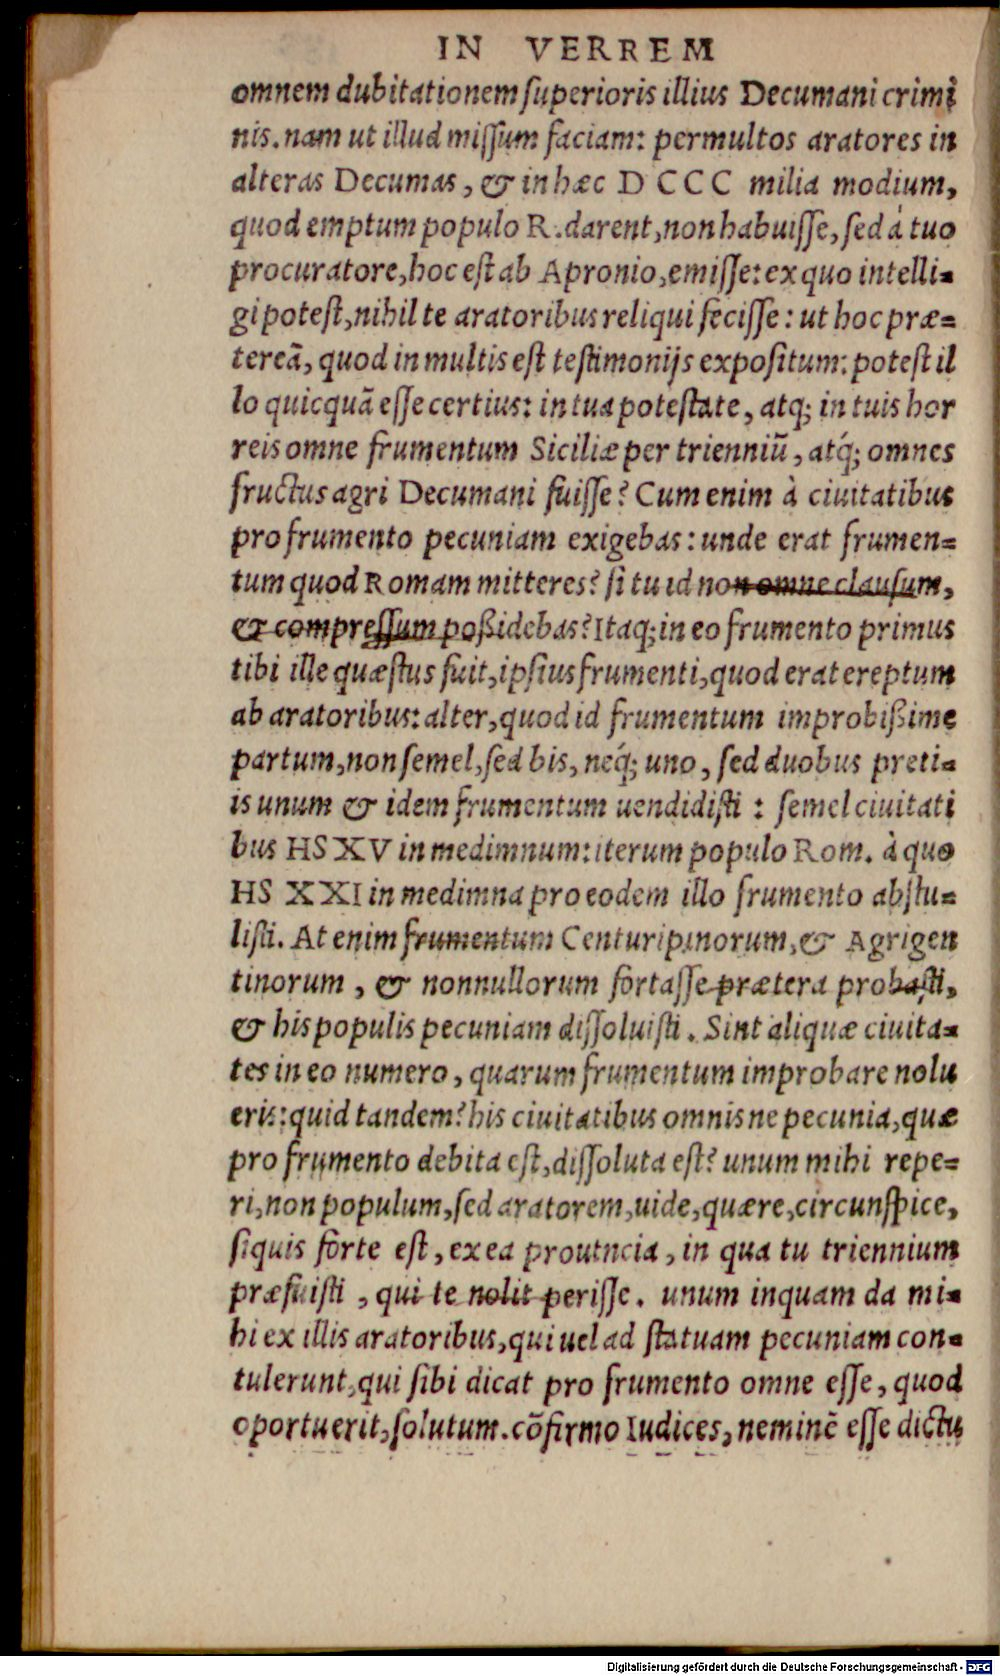 IN VERREM
omnem dubitationem ſuperioris illius Decumani crimi
nis. nam ut illud miſſum faciam: permultos aratores in
alteras Decumas, & in hæc D C C C milia modium,
quod emptum populo R. darent, non habuiſſe, ſed à tuo
procuratore, hoc eſt ab Apronio, emiſſe: ex quo intelli-
gi poteſt, nihil te aratoribus reliqui feciſſe: ut hoc præ-
tereã, quod in multis eſt teſtimonijs expoſitum: poteſt il
lo quicquã eſſe certius: in tua poteſtate, atq; in tuis hor
reis omne frumentum Siciliæ per trienniũ, atq́; omnes
fructus agri Decumani fuiſſe? Cum enim à ciuitatibus
pro frumento pecuniam exigebas: unde erat frumen-
tum quod Romam mitteres? ſi tu id non omne clauſum,
& compreſſum poßidebas? Itaq; in eo frumento primus
tibi ille quæſtus fuit, ipſius frumenti, quod erat ereptum
ab aratoribus: alter, quod id frumentum improbißime
partum, non ſemel, ſed bis, neq́; uno, ſed duobus preti-
is unum & idem frumentum uendidiſti : ſemel ciuitati
bus HS XV in medimnum: iterum populo Rom. à quo
HS XXI in medimna pro eodem illo frumento abſtu-
liſti. At enim frumentum Centuripinorum, & Agrigen
tinorum, & nonnullorum fortaſſe prætera probaſti,
& his populis pecuniam diſſoluiſti. Sint aliquæ ciuita-
tes in eo numero, quarum frumentum improbare nolu
eris: quid tandem? his ciuitatibus omnis ne pecunia, quæ
pro frumento debita eſt, diſſoluta eſt? unum mihi repe-
ri, non populum, ſed aratorem, uide, quære, circunſpice,
ſi quis forte eſt, ex ea prouincia, in qua tu triennium
præfuiſti, qui te nolit periſſe. unum inquam da mi-
hi ex illis aratoribus, qui uel ad ſtatuam pecuniam con-
tulerunt, qui ſibi dicat pro frumento omne eſſe, quod
oportuerit, ſolutum. cõfirmo Iudices, neminẽ eſſe dictu
Digitalisierung gefördert durch die Deutsche Forschungsgemeinschaft - DFG